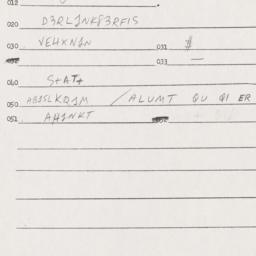 012
020 D3RL1NK83RFIS
030 VEHXN1N 031 $
033 —
040 S+AT+
050 AB1SLKQ1M / ALUMT QU QI ER
051 AH1NKT